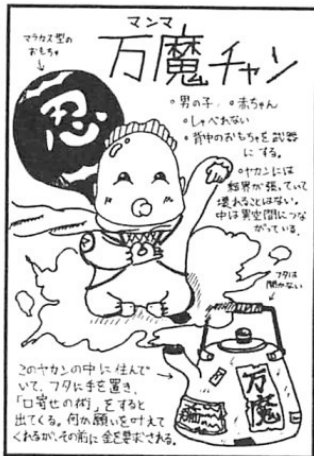 マンマ
万魔チャン
マラカス型の
おもちゃ
忍
・男の子 ・赤ちゃん
・しゃべれない
・背中のおもちゃを武器
にする。
・ヤカンには
結界が張っていて
壊れることはない。
中は異空間につな
がっている。
フタは
開かない
万魔
このヤカンの中に住んで
いて、フタに手を置き、
「口寄せの術」をすると
出てくる。何か願いを叶えて
くれるが、その前に金を要求される。